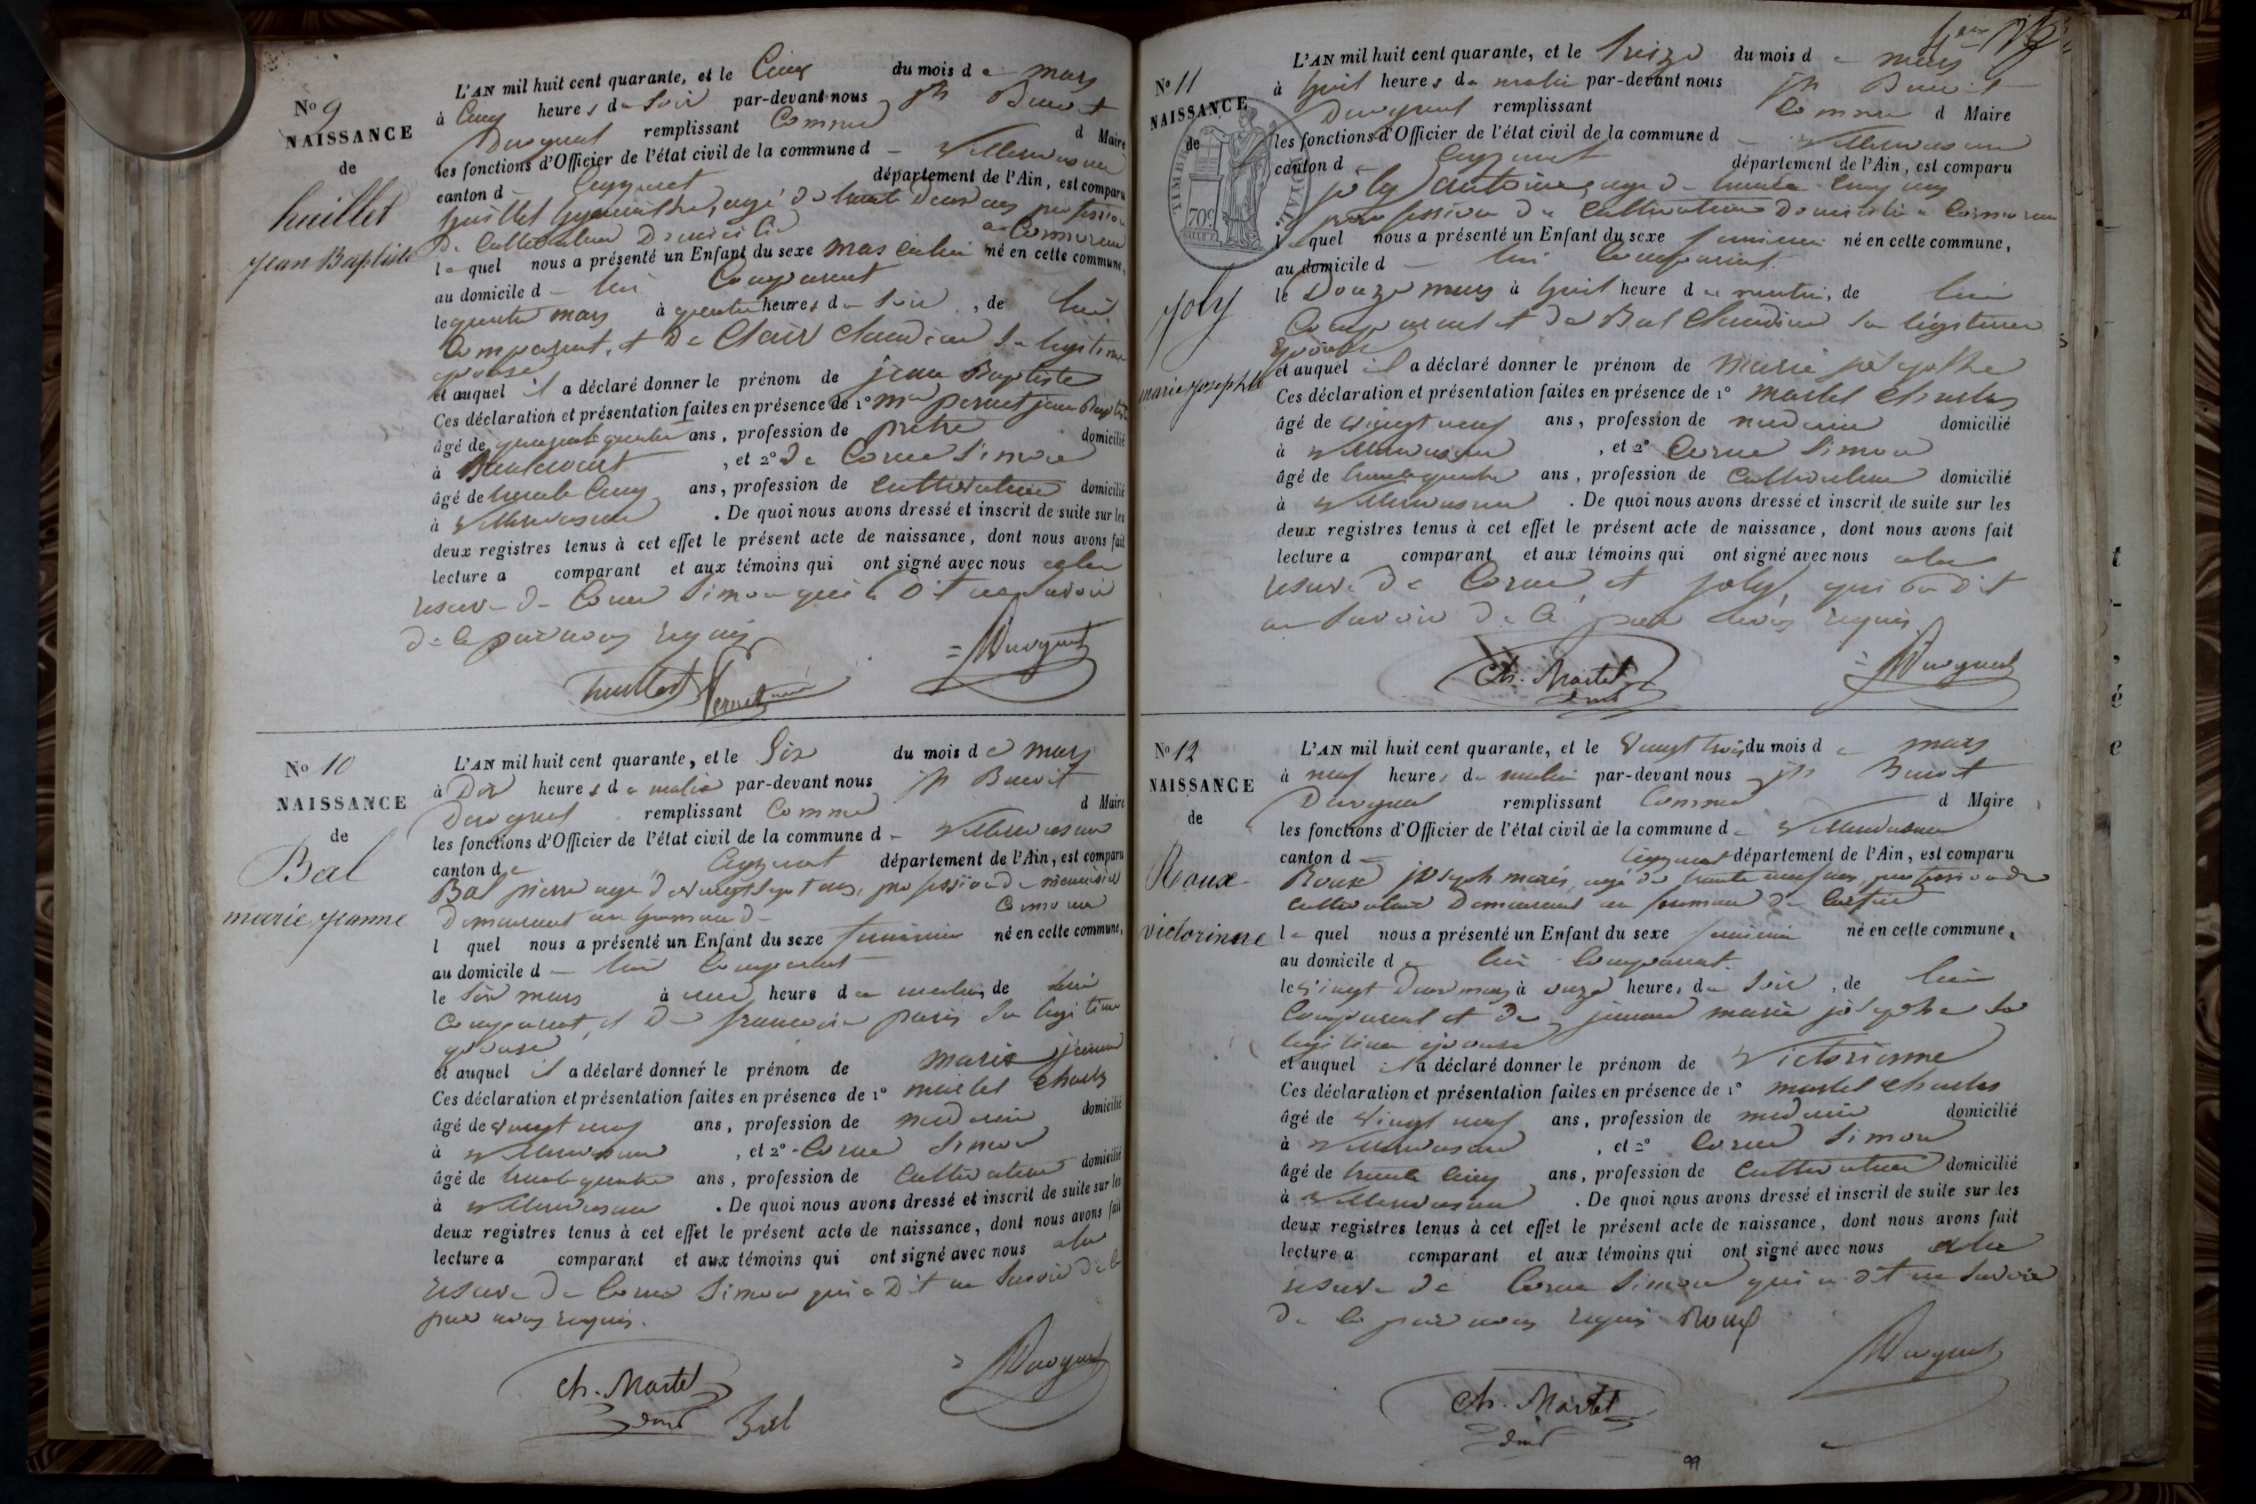 No 9
NAISSANCE
de
huillet
jean Baptiste
L'AN mil huit cent quarante, et le Cinq du mois de mars
à Cinq heures de Soir par-devant nous jh Benoit
remplissant Comme d Maire
les fonctions d'Officier de l'état civil de la commune de
canton de Ceyzeriat département de l'Ain, est comparu
huillet hyacinthe, agé de trente deux ans profession
de Cultivateur Domicilié a Commune
lequel nous a présenté un Enfant du sexe masculin né en cette commune,
au domicile de lui Comparant
le quatre mars à quatre heures de Soir, de lui
Comparant, et De Clair Claudine Sa legitime
epouse
et auquel il a déclaré donner le prénom de jean Baptiste
Ces déclaration et présentation faites en présence de 1° Mr pernet jean Baptiste
âgé de quarante quatre ans, profession de prêtre domicilié
à , et 2° De Corne Simon
âgé de trente Cinq ans, profession de Cultivateur domicilié
à . De quoi nous avons dressé et inscrit de suite sur les
deux registres tenus à cet effet le présent acte de naissance, dont nous avons fait
lecture a comparant et aux témoins qui ont signé avec nous a la
reserve de Corne Simon qui a Dit ne Savoir
de ce par nous requis
huillet Pernet
No 10
NAISSANCE
de
Bal
marie jeanne
L'AN mil huit cent quarante, et le Six du mois de mars
à Dix heures de matin par-devant nous jh Benoit
remplissant Comme d Maire
les fonctions d'Officier de l'état civil de la commune de
canton de Ceyzeriat département de l'Ain, est comparu
Bal pierre agé de vingt Sept ans, profession de menuisier
Demeurant au hameau de Commune
l quel nous a présenté un Enfant du sexe feminin né en cette commune,
au domicile de lui Comparant
le Six mars à une heure de matin, de lui
Comparant et De francoise paris Sa legitime
epouse
et auquel il a déclaré donner le prénom de marie jeanne
Ces déclaration et présentation faites en présence de 1° martel Charles
âgé de vingt neuf ans, profession de medecin domicilié
à , et 2° Corne Simon
âgé de trente quatre ans, profession de Cultivateur domicilié
à . De quoi nous avons dressé et inscrit de suite sur les
deux registres tenus à cet effet le présent acte de naissance, dont nous avons fait
lecture a comparant et aux témoins qui ont signé avec nous a la
reserve De Corne Simon qui a Dit ne Savoir de ce
par nous requis.
Ch. Martel
Bal
No 11
NAISSANCE
de
TIMBRE ROYAL
70c
joly
marie josephte
L'AN mil huit cent quarante, et le treize du mois de mars
à huit heures de matin par-devant nous jh Benoit
remplissant Comme d Maire
les fonctions d'Officier de l'état civil de la commune de
canton de Ceyzeriat département de l'Ain, est comparu
joly antoine, agé de trente Cinq ans
profession De Cultivateur Domicilié a Commune
lequel nous a présenté un Enfant du sexe feminin né en cette commune,
au domicile de lui Comparant.
le Douze mars à huit heure de matin, de lui
Comparant et de Bal Claudine Sa légitime
Epouse
et auquel il a déclaré donner le prénom de marie josephte
Ces déclaration et présentation faites en présence de 1° martel Charles
âgé de vingt neuf ans, profession de medecin domicilié
à , et 2° Corne Simon
âgé de trente quatre ans, profession de Cultivateur domicilié
à . De quoi nous avons dressé et inscrit de suite sur les
deux registres tenus à cet effet le présent acte de naissance, dont nous avons fait
lecture a comparant et aux témoins qui ont signé avec nous a la
reserve De Corne, et joly, qui on Dit
ne Savoir De Ce par nous requis
Ch. Martel
No 12
NAISSANCE
de
Roux
victorinne
L'AN mil huit cent quarante, et le Vingt trois du mois de mars
à neuf heures de matin par-devant nous jh Benoit
remplissant Comme d Maire
les fonctions d'Officier de l'état civil de la commune de
canton de Ceyzeriat département de l'Ain, est comparu
Roux joseph marie, agé de trente neuf ans, profession de
Cultivateur Demeurant au hameau De
lequel nous a présenté un Enfant du sexe feminin né en cette commune,
au domicile de lui Comparant.
le vingt Deux mars à onze heures de Soir, de lui
Comparant et De marie josephte Sa
legitime epouse
et auquel il a déclaré donner le prénom de Victorinne
Ces déclaration et présentation faites en présence de 1° martel Charles
âgé de Vingt neuf ans, profession de medecin domicilié
à , et 2° Corne Simon
âgé de trente Cinq ans, profession de Cultivateur domicilié
à . De quoi nous avons dressé et inscrit de suite sur les
deux registres tenus à cet effet le présent acte de naissance, dont nous avons fait
lecture a comparant et aux témoins qui ont signé avec nous a la
reserve De Corne Simon qui a dit ne Savoir
De ce par nous requis Roux
Ch. Martel
99